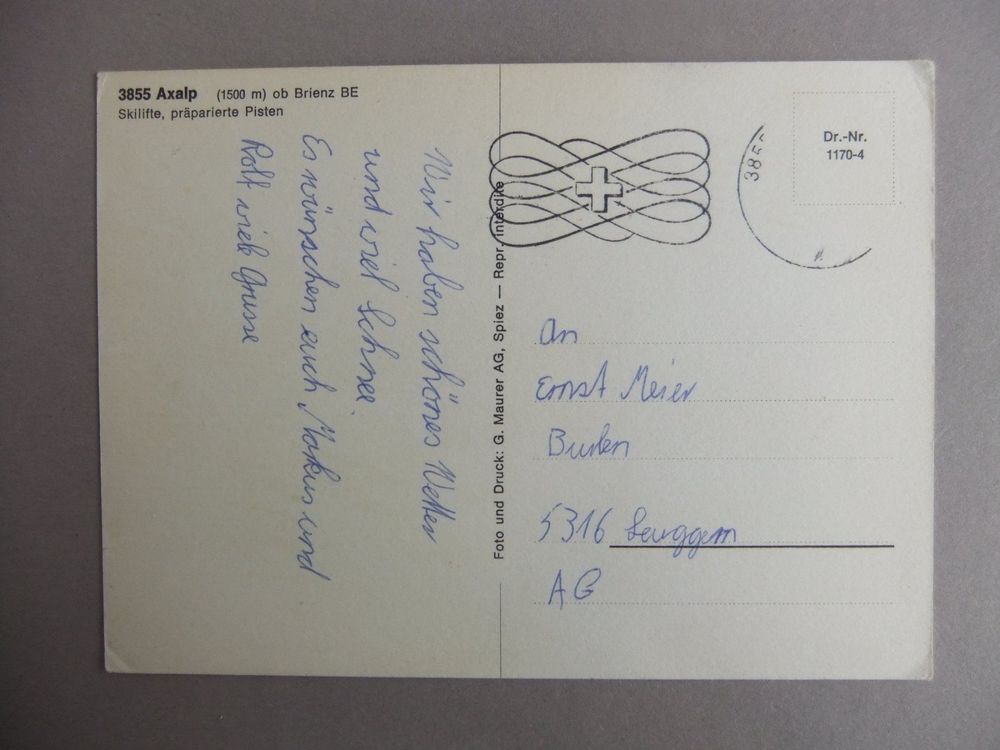 3855 Axalp (1500 m) ob Brienz BE
Skilifte, präparierte Pisten
Wir haben schönes Wetter
und viel Schnee.
Es wünschen euch Markus und
Rolf viele Grüsse
Foto und Druck: G. Maurer AG, Spiez — Repr. interdite
385
Dr.-Nr.
1170-4
An
Ernst Meier
5316 Leuggern
AG